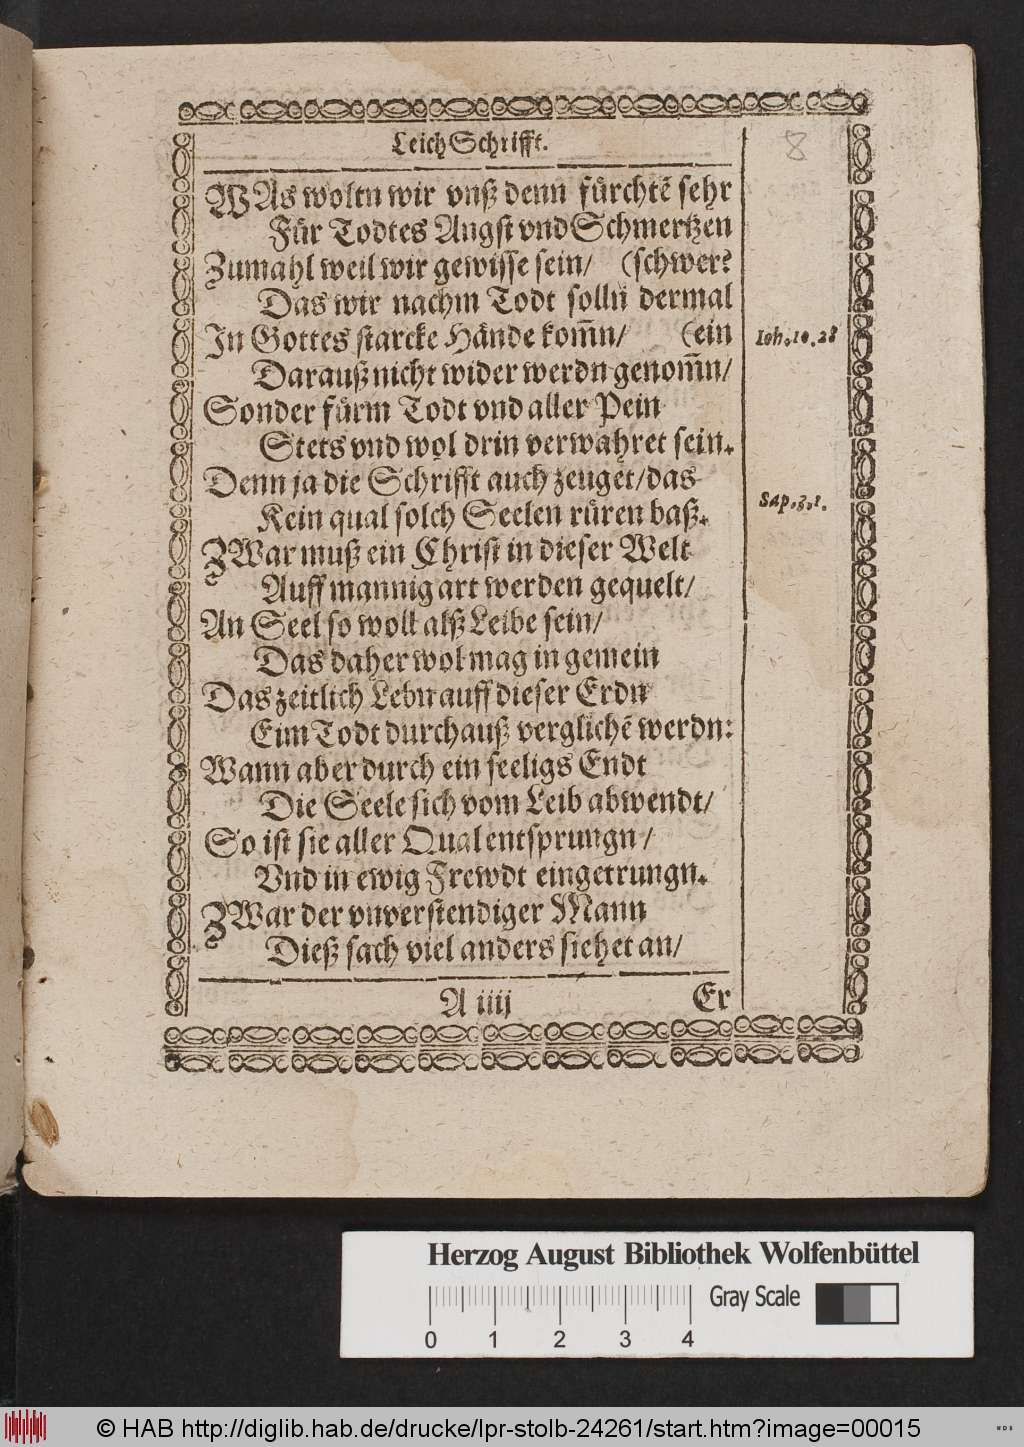 LeichSchrifft.
8
WAs woltn wir vnß denn fürchtē sehr
Für Todtes Angst vnd Schmertzen
Zumahl weil wir gewisse sein/ (schwer?
Das wir nachm Todt solln dermal
In Gottes starcke Hände kom̄n/ (ein
Ioh.10.28
Darauß nicht wider werdn genom̄n/
Sonder fürm Todt vnd aller Pein
Stets vnd wol drin verwahret sein.
Denn ja die Schrifft auch zeuget/das
Sap.3.1.
Kein qual solch Seelen rüren baß.
ZWar muß ein Christ in dieser Welt
Auff mannig art werden gequelt/
An Seel so woll alß Leibe sein/
Das daher wol mag in gemein
Das zeitlich Lebn auff dieser Erdn
Eim Todt durchauß verglichē werdn:
Wann aber durch ein seeligs Endt
Die Seele sich vom Leib abwendt/
So ist sie aller Qual entsprungn/
Vnd in ewig Frewdt eingetrungn.
ZWar der vnverstendiger Mann
Dieß sach viel anders siehet an/
A iiij Er
Herzog August Bibliothek Wolfenbüttel
Gray Scale
0 1 2 3 4
© HAB http://diglib.hab.de/drucke/lpr-stolb-24261/start.htm?image=00015